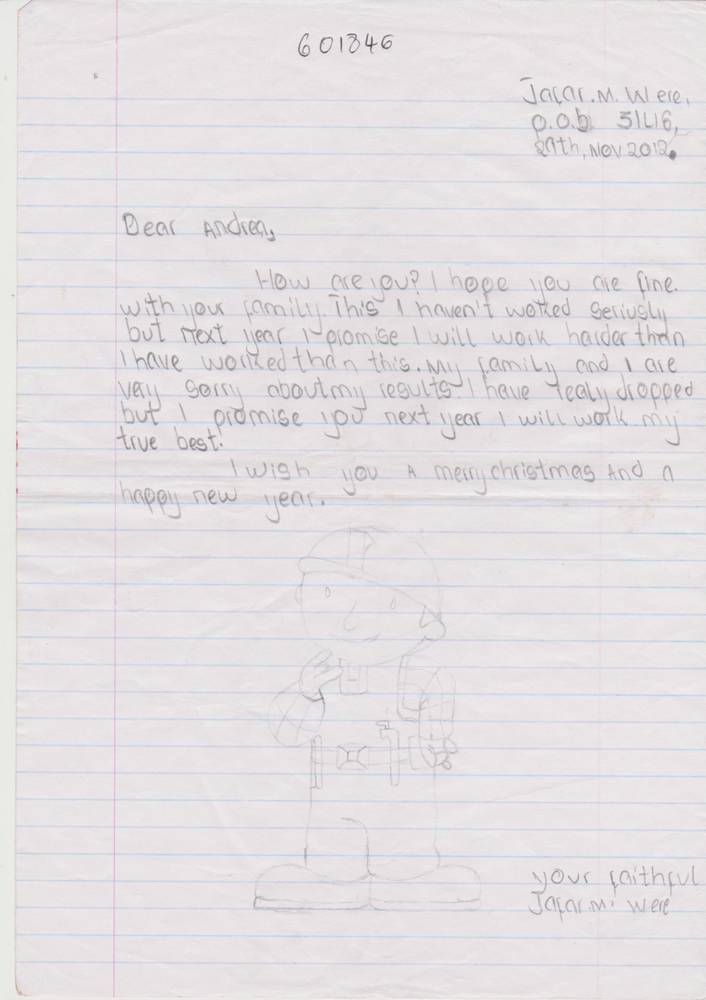 601846
Jafar.M. Were,
p.o.b 31L16,
29th, Nov 2012.
Dear Andrea,
How are you? I hope you are fine.
with your family. This I haven't worked seriusly
but next year I promise I will work harder than
I have worked than this. My family and I are
very sorry about my results. I have realy dropped
but I promise you next year I will work my
true best.
I wish you A merry christmas And a
happy new year.
your faithful
Jafar.M. Were